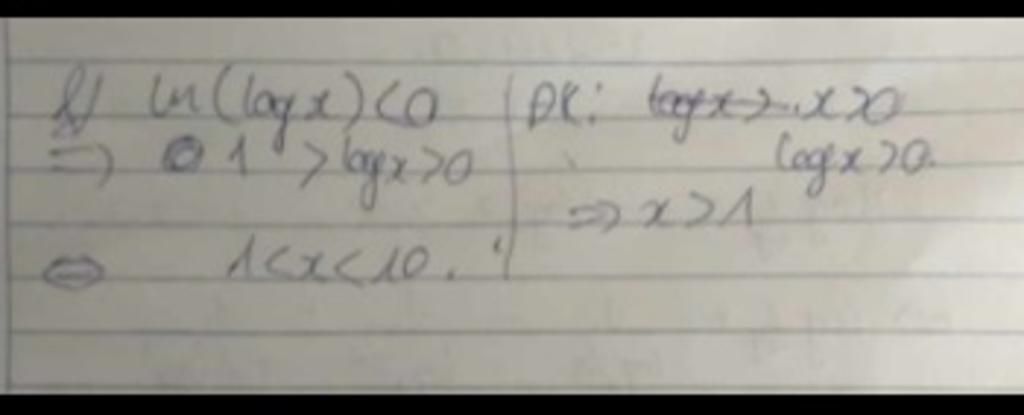 b) ln(log x) < 0
=> 1 > log x > 0
<=> 1 < x < 10.
ĐK: x > 0
log x > 0.
=> x > 1